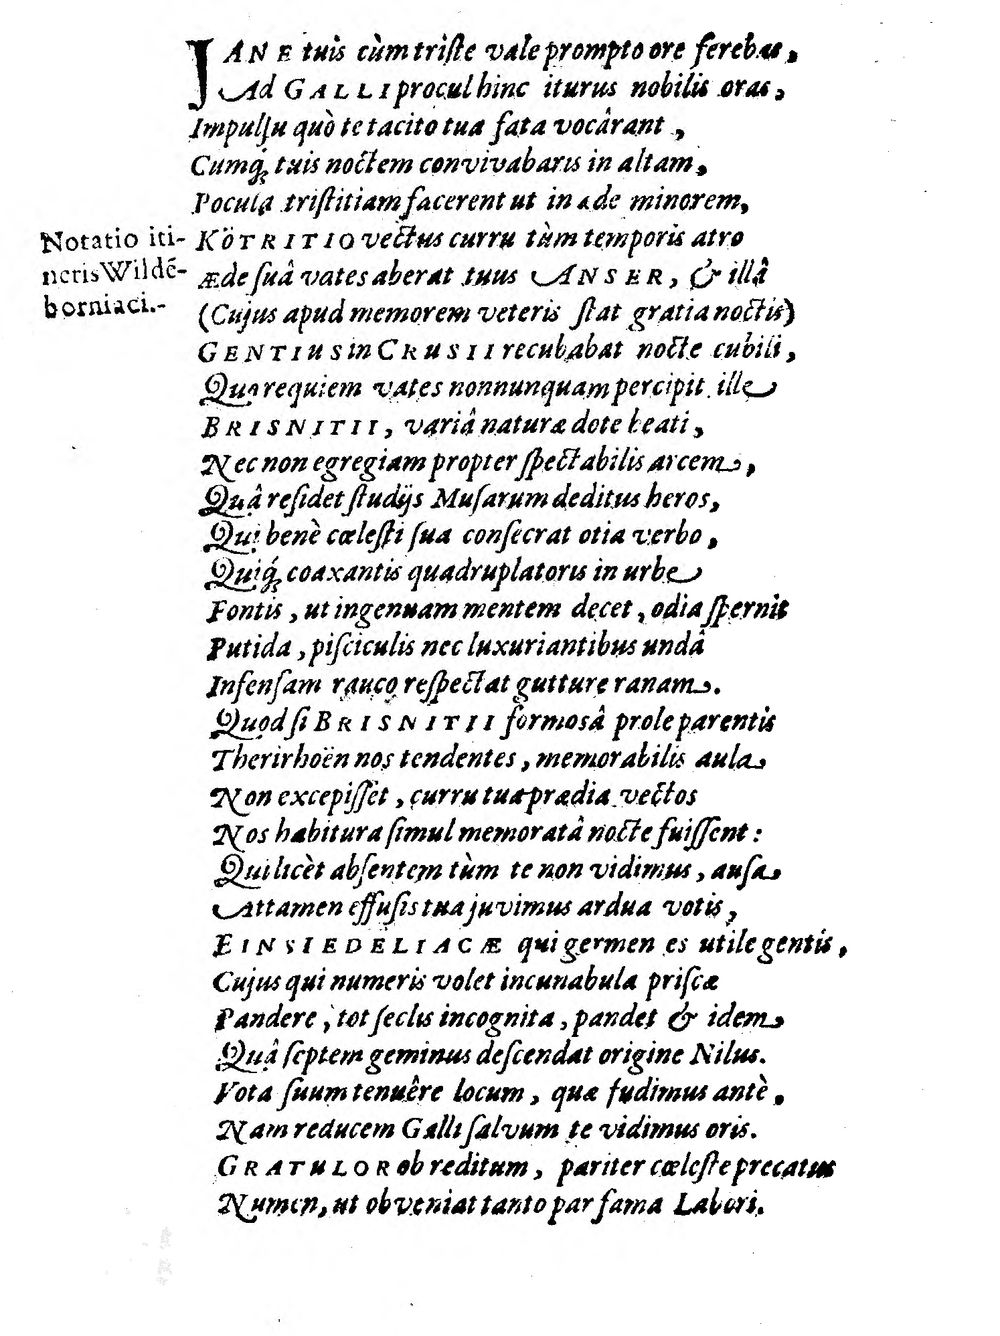 JANE tuis cùm triste vale prompto ore ferebas,
Ad GALLI procul hinc iturus nobilis oras,
Impulsu quò te tacito tua fata vocârant,
Cumq́; tuis noctem convivabaris in altam,
Pocula tristitiam facerent ut in æde minorem,
KÖTRITIO vectus curru tùm temporis atro
Notatio iti-
neris Wildē-
borniaci.-
Æde suâ vates aberat tuus ANSER, & illâ
(Cujus apud memorem veteris stat gratia noctis)
GENTIUS in CRUSII recubabat nocte cubili,
Qua requiem vates nonnunquam percipit ille
BRISNITII, variâ naturæ dote beati,
Nec non egregiam propter spectabilis arcem,
Quâ residet studijs Musarum deditus heros,
Qui benè cœlesti sua consecrat otia verbo,
Quiq́; coaxantis quadruplatoris in urbe
Fontis, ut ingenuam mentem decet, odia spernit
Putida, pisciculis nec luxuriantibus undâ
Infensam rauco respectat gutture ranam.
Quod si BRISNITII formosâ prole parentis
Therirhoën nos tendentes, memorabilis aula
Non excepisset, curru tua prædia vectos
Nos habitura simul memoratâ nocte fuissent:
Qui licèt absentem tùm te non vidimus, ausa
Attamen effusis tua juvimus ardua votis,
EINSIEDELIACÆ qui germen es utile gentis,
Cujus qui numeris volet incunabula priscæ
Pandere, tot seclis incognita, pandet & idem
Quâ septem geminus descendat origine Nilus.
Vota suum tenuêre locum, quæ fudimus antè,
Nam reducem Galli salvum te vidimus oris.
GRATULOR ob reditum, pariter cœleste precatus
Numen, ut obveniat tanto par fama Labori.